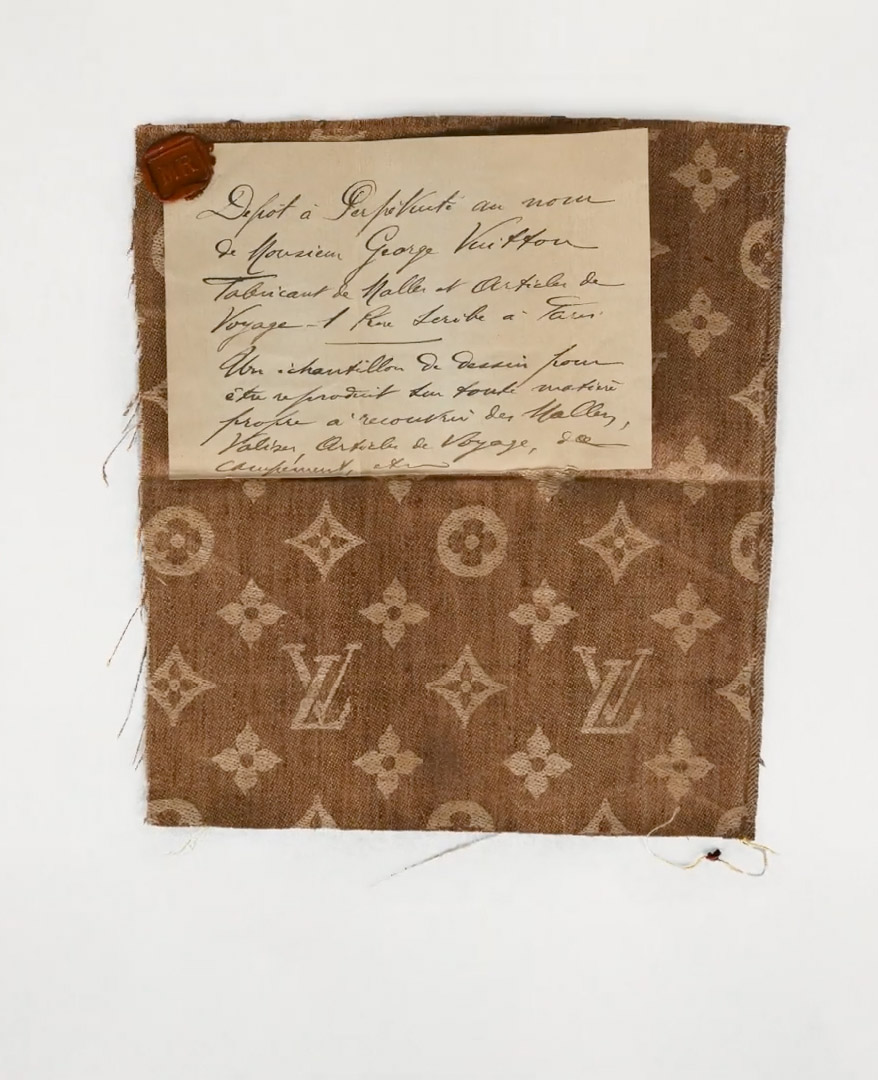 Depôt à Perpétuité au nom
de Monsieur George Vuitton
Fabricant de Malles et Articles de
Voyage - 1 Rue Scribe à Paris.
Un échantillon de dessin pour
être reproduit sur toute matière
propre à recouvrir des Malles,
Valises, Articles de Voyage, de
campement, etc
LV LV